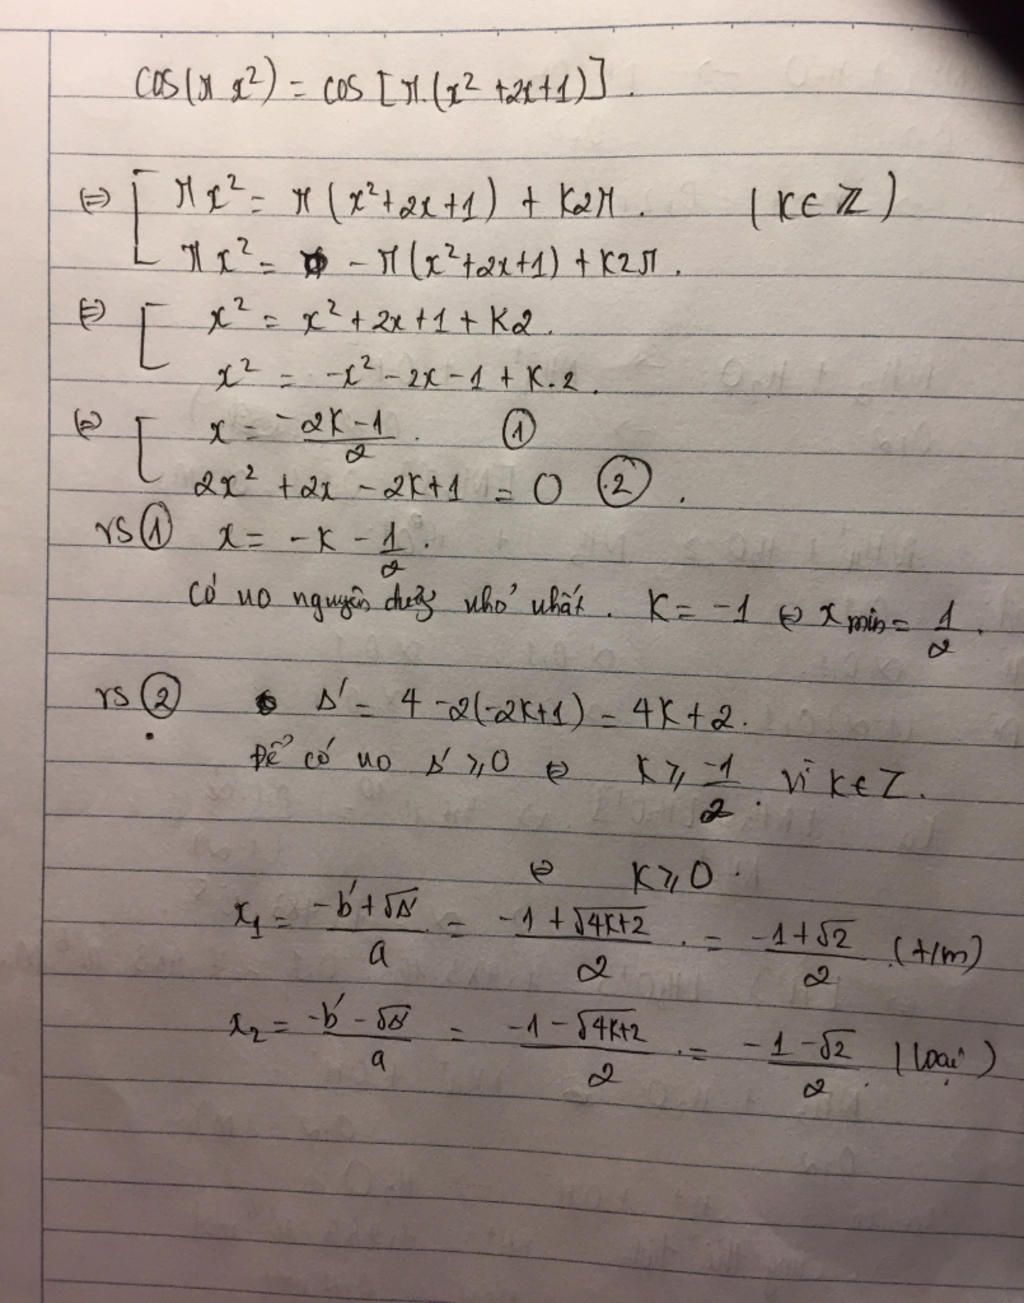 cos(π x²) = cos [π.(x² +2x+1)].
⇔ [ πx² = π (x²+2x+1) + K2π. (K∈ℤ)
πx² = - π(x²+2x+1) + K2π.
⇔ [ x² = x² + 2x + 1 + K2.
x² = -x² - 2x - 1 + K.2.
⇔ [ x = (-2K-1)/2. ①
2x² + 2x - 2K+1 = 0 ②.
vs ① x = -K - 1/2.
Có no nguyên dương nhỏ nhất. K = -1 ⇔ x min = 1/2.
vs ② Δ' = 4 -2(-2K+1) = 4K+2.
Để có no Δ' ⩾ 0 ⇔ K ⩾ -1/2. vì K∈Z.
⇔ K ⩾ 0.
x₁ = (-b'+√Δ')/a = (-1+√4K+2)/2. = (-1+√2)/2 (t/m)
x₂ = (-b'-√Δ')/a = (-1-√4K+2)/2. = (-1-√2)/2. (loại)